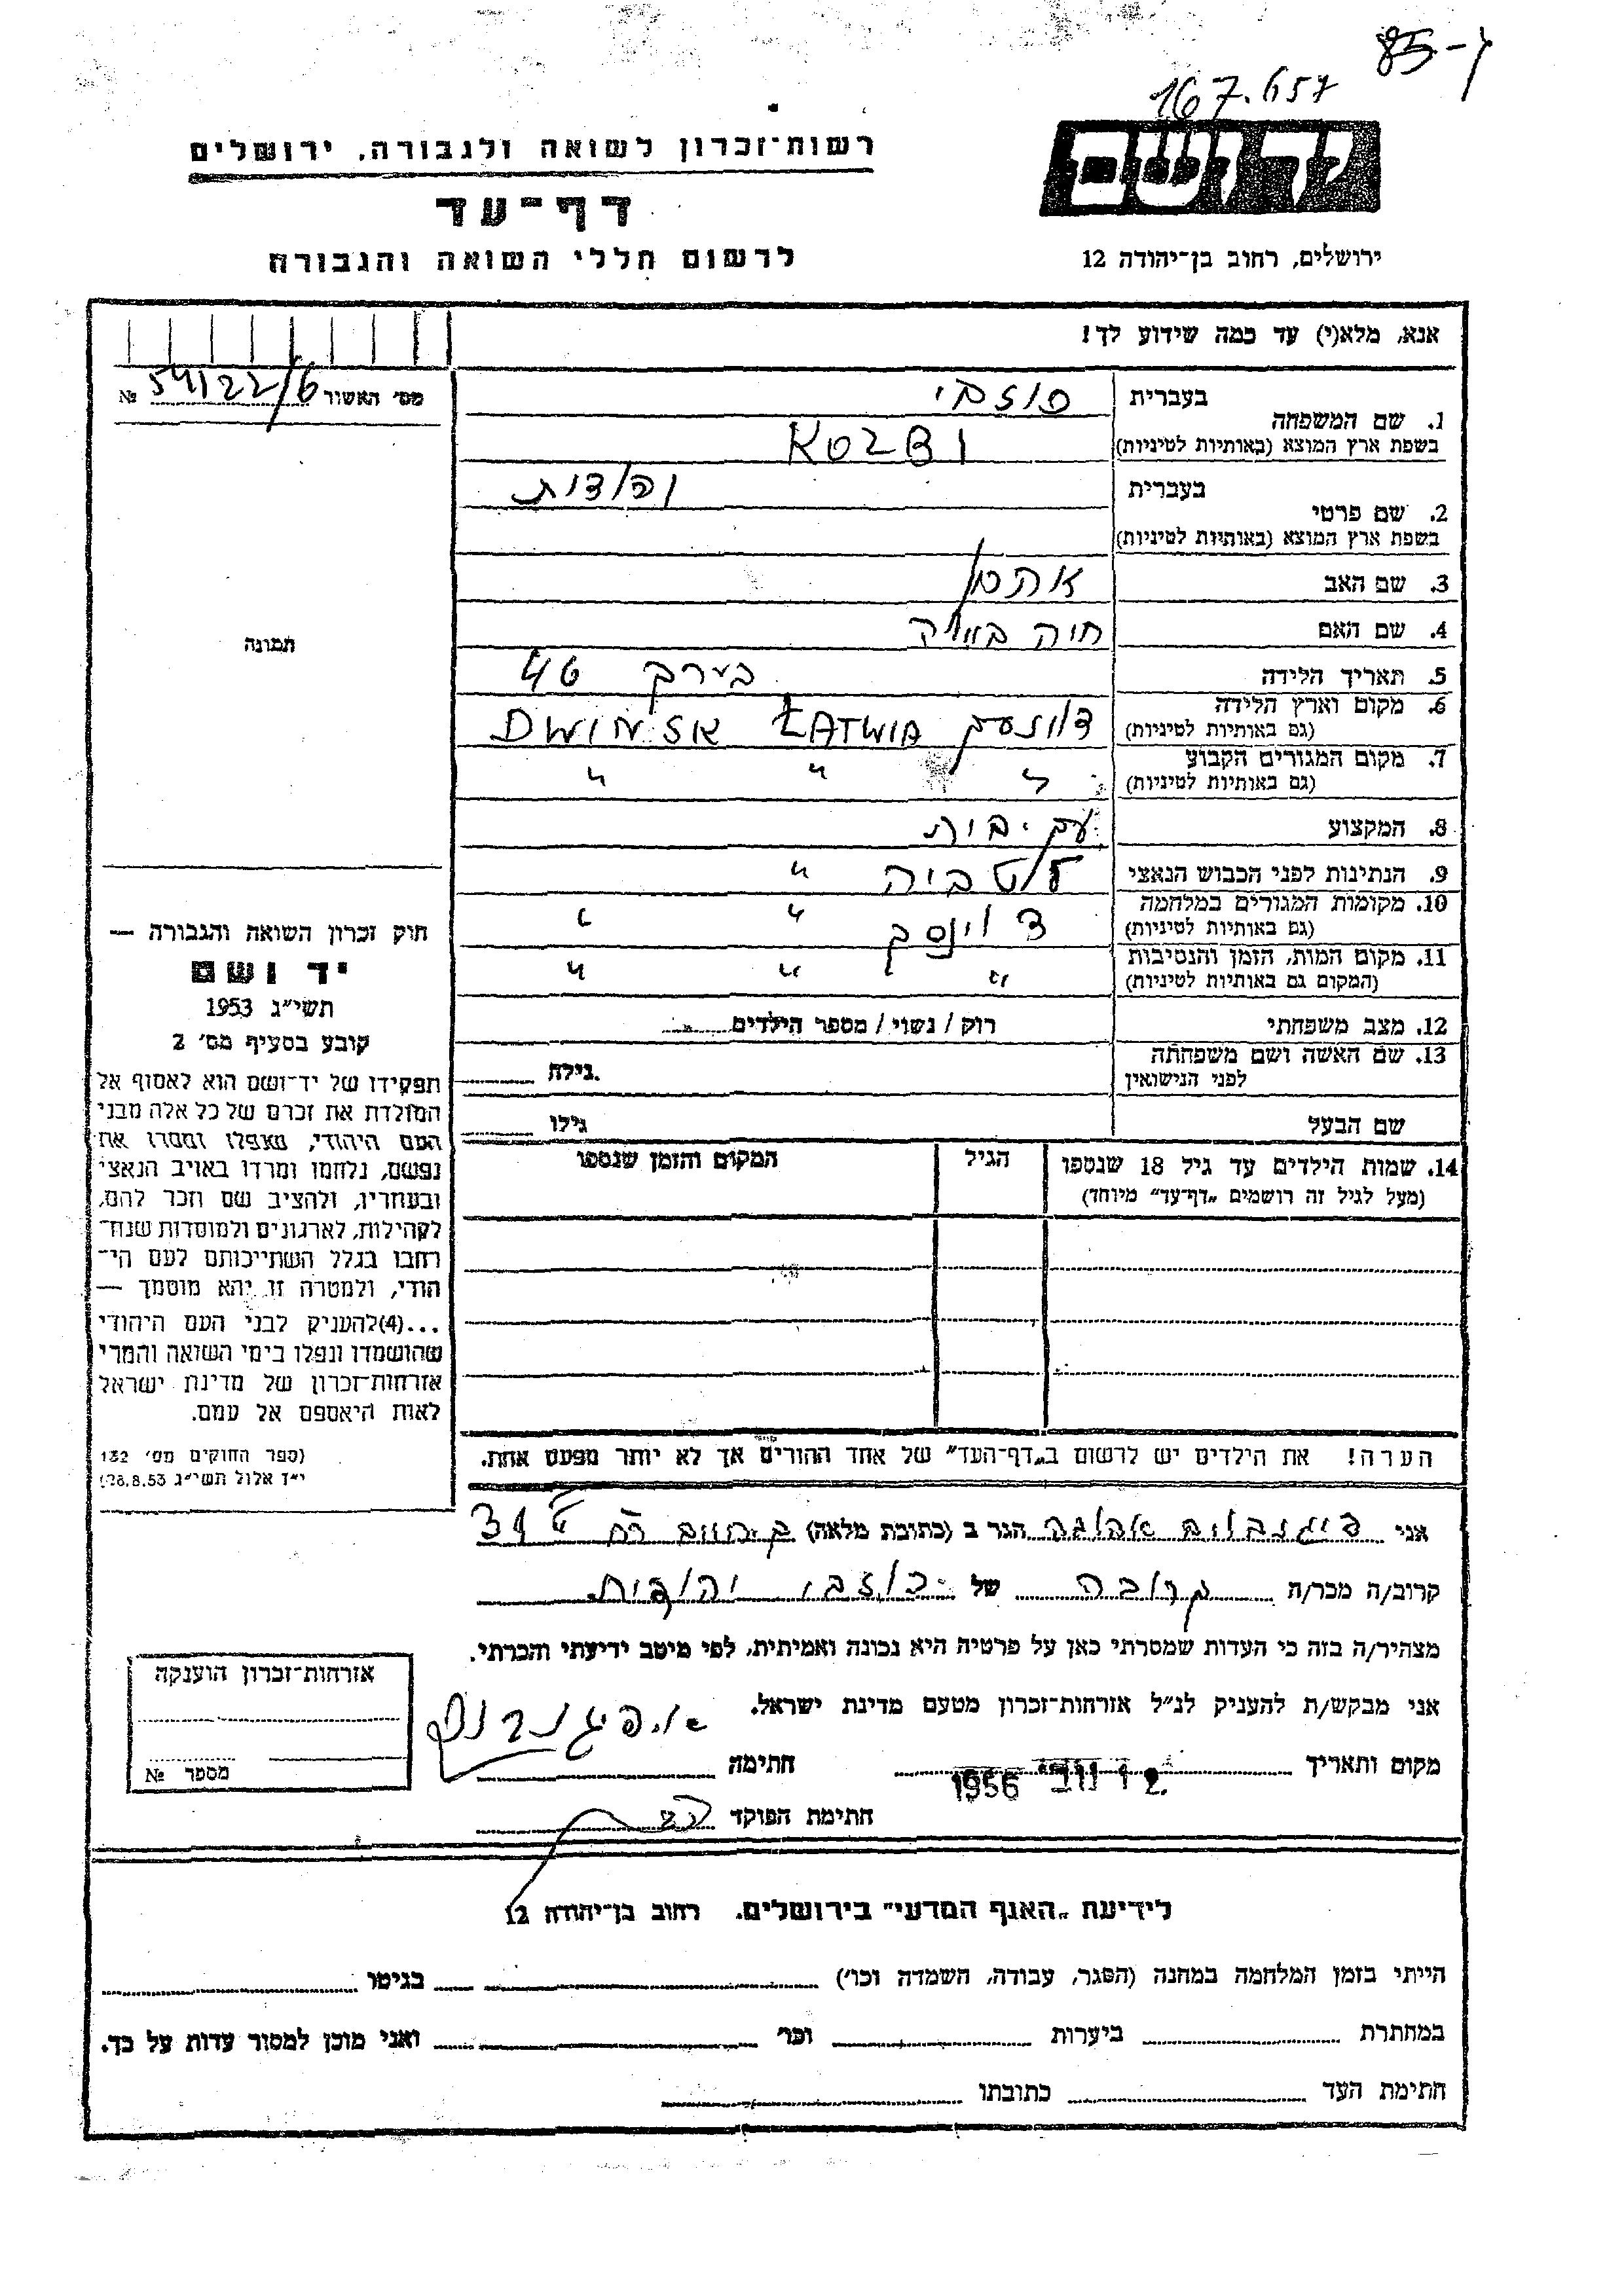 85-ץ
167.657
יד ושם
ירושלים, רחוב בן־יהודה 12
רשות־זכרון לשואה ולגבורה, ירושלים
דף־עד
לרשום חללי השואה והגבורה
אנא, מלא(י) עד כמה שידוע לך!
מס׳ האשור 54122/6 №
1. שם המשפחה
בעברית
בשפת ארץ המוצא (באותיות לטיניות)
2. שם פרטי
בעברית יהודית
בשפת ארץ המוצא (באותיות לטיניות)
3. שם האב
4. שם האם חיה
5. תאריך הלידה בערך 46
6. מקום וארץ הלידה
(גם באותיות לטיניות) DWINSK ŁATWIA
7. מקום המגורים הקבוע " " "
(גם באותיות לטיניות)
8. המקצוע עק. בית
9. הנתינות לפני הכבוש הנאצי לטביה "
10. מקומות המגורים במלחמה דוינסק " "
(גם באותיות לטיניות)
11. מקום המות, הזמן והנסיבות " " "
(המקום גם באותיות לטיניות)
12. מצב משפחתי רוק / נשוי / מספר הילדים
13. שם האשה ושם משפחתה
לפני הנישואין
גילה
שם הבעל גילו
14. שמות הילדים עד גיל 18 שנספו הגיל המקום והזמן שנספו
(מעל לגיל זה רושמים „דף־עד״ מיוחד)
הערה! את הילדים יש לרשום ב„דף־העד״ של אחד ההורים אך לא יותר מפעם אחת.
תמונה
חוק זכרון השואה והגבורה —
יד ושם
תשי״ג 1953
קובע בסעיף מס׳ 2
תפקידו של יד־ושם הוא לאסוף אל
המולדת את זכרם של כל אלה מבני
העם היהודי, שנפלו ומסרו את
נפשם, נלחמו ומרדו באויב הנאצי
ובעוזריו, ולהציב שם וזכר להם,
לקהילות, לארגונים ולמוסדות שנח־
רחבו בגלל השתייכותם לעם הי־
הודי, ולמטרה זו יהא מוסמך —
...(4)להעניק לבני העם היהודי
שהושמדו ונפלו בימי השואה והמרי
אזרחות־זכרון של מדינת ישראל
לאות היאספם אל עמם.
(ספר החוקים מס׳ 132
י״ז אלול תשי״ג 28.8.53)
אני הגר ב (כתובת מלאה)
קרוב/ה מכר/ה קרובה של יהודית
מצהיר/ה בזה כי העדות שמסרתי כאן על פרטיה היא נכונה ואמיתית, לפי מיטב ידיעתי והכרתי.
אני מבקש/ת להעניק לנ״ל אזרחות־זכרון מטעם מדינת ישראל.
מקום ותאריך נוב׳ 1956 חתימה
חתימת הפוקד
אזרחות־זכרון הוענקה
מספר №
לידיעת „האגף המדעי״ בירושלים. רחוב בן־יהודה 12
הייתי בזמן המלחמה במחנה (הסגר, עבודה, השמדה וכו׳) בגיטו
במחתרת ביערות וכו׳ ואני מוכן למסור עדות על כך.
חתימת העד כתובתו